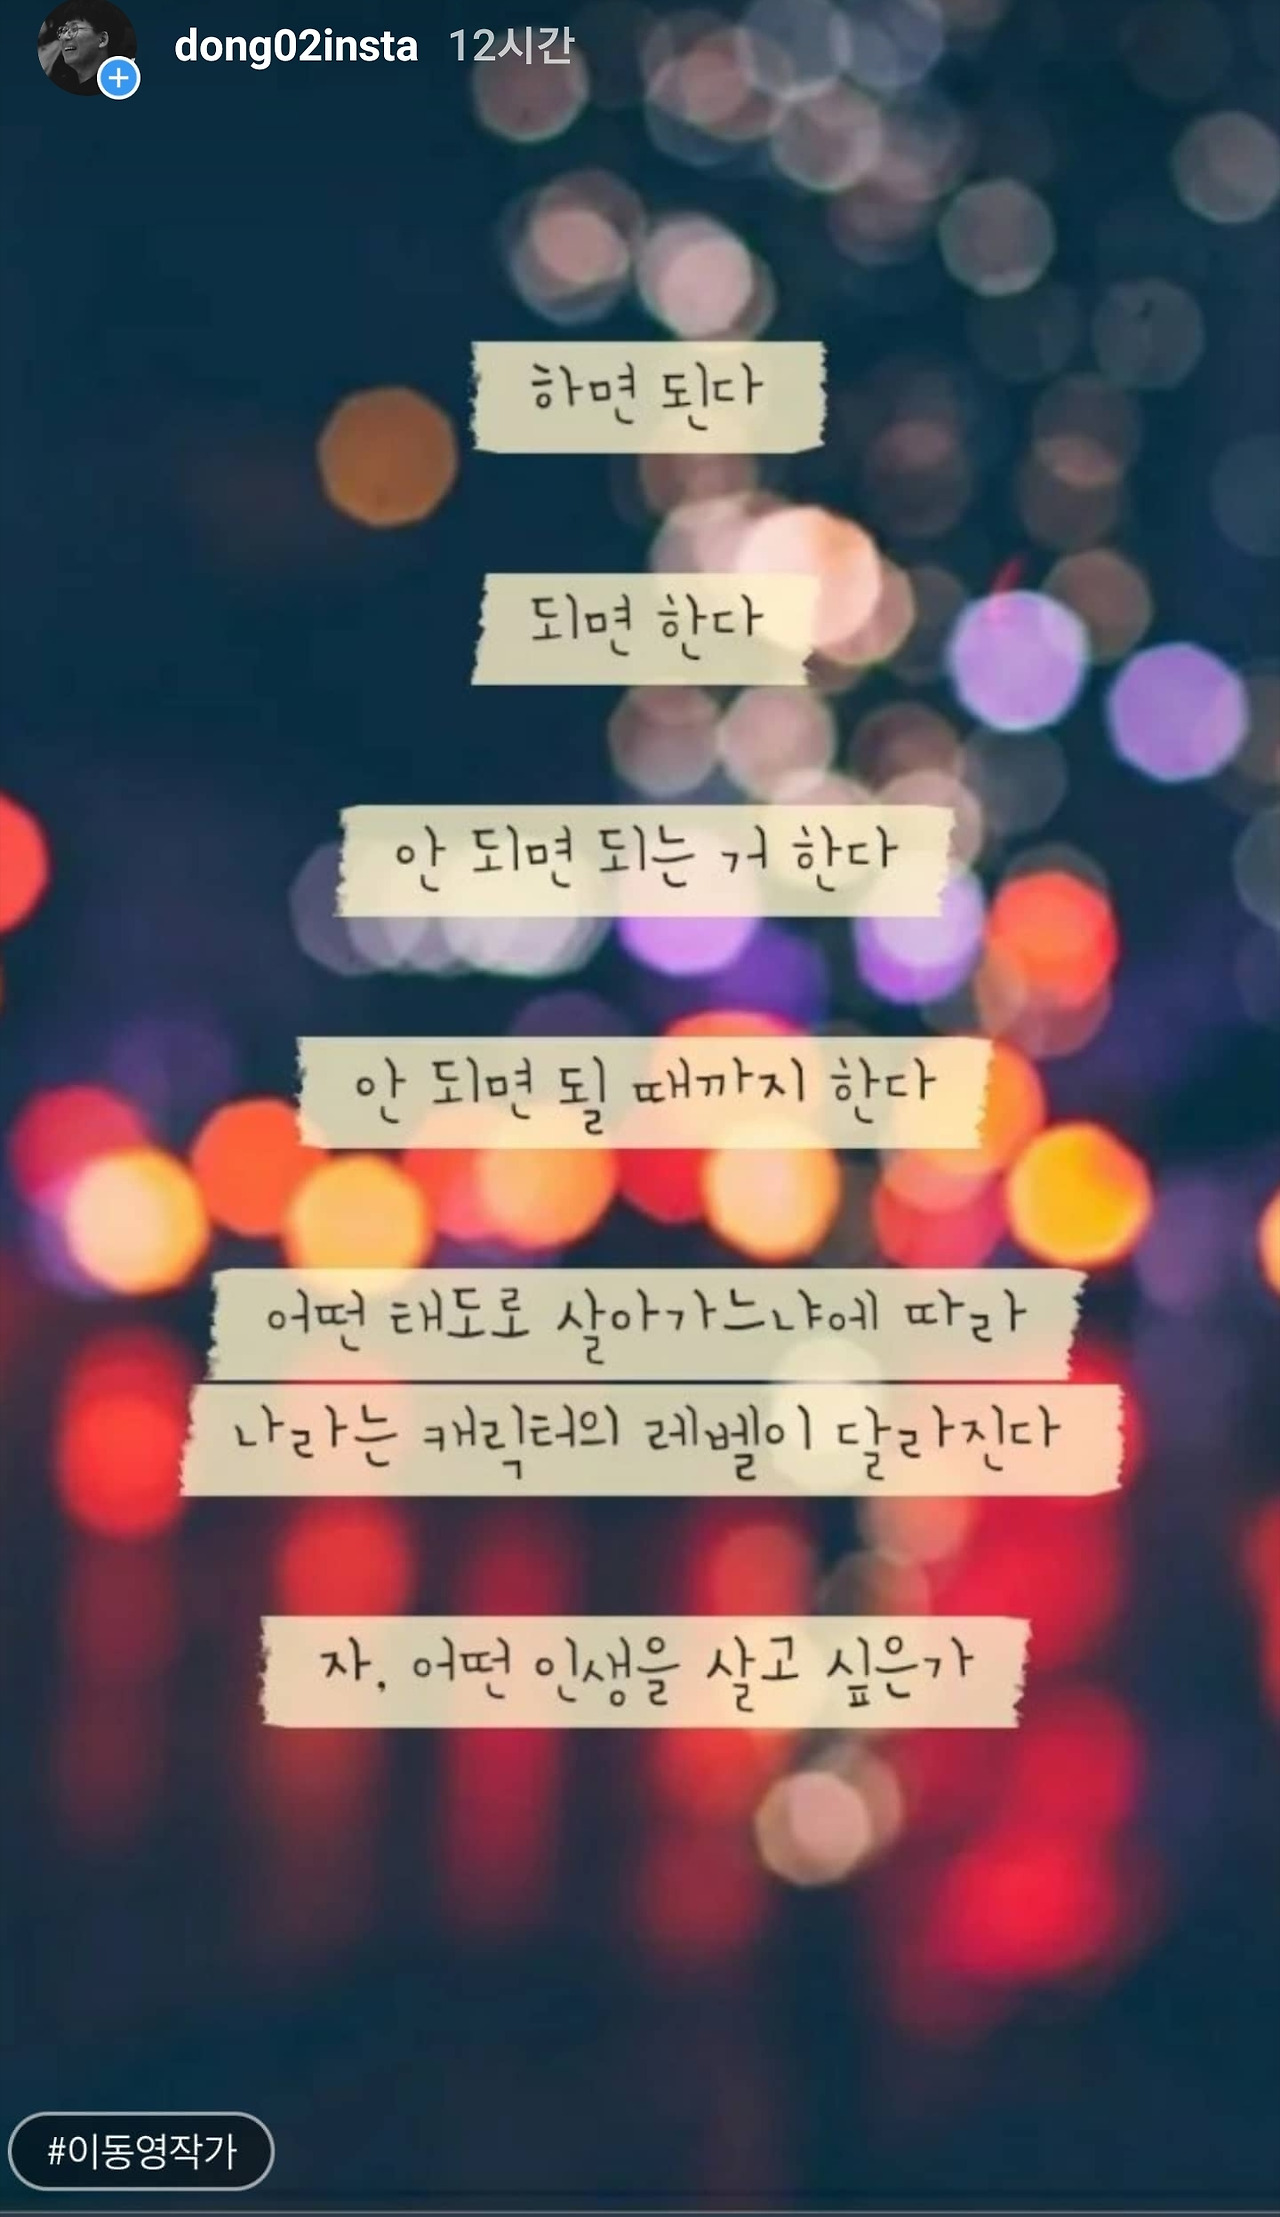 dong02insta 12시간
하면 된다
되면 한다
안 되면 되는 거 한다
안 되면 될 때까지 한다
어떤 태도로 살아가느냐에 따라
나라는 캐릭터의 레벨이 달라진다
자, 어떤 인생을 살고 싶은가
#이동영작가